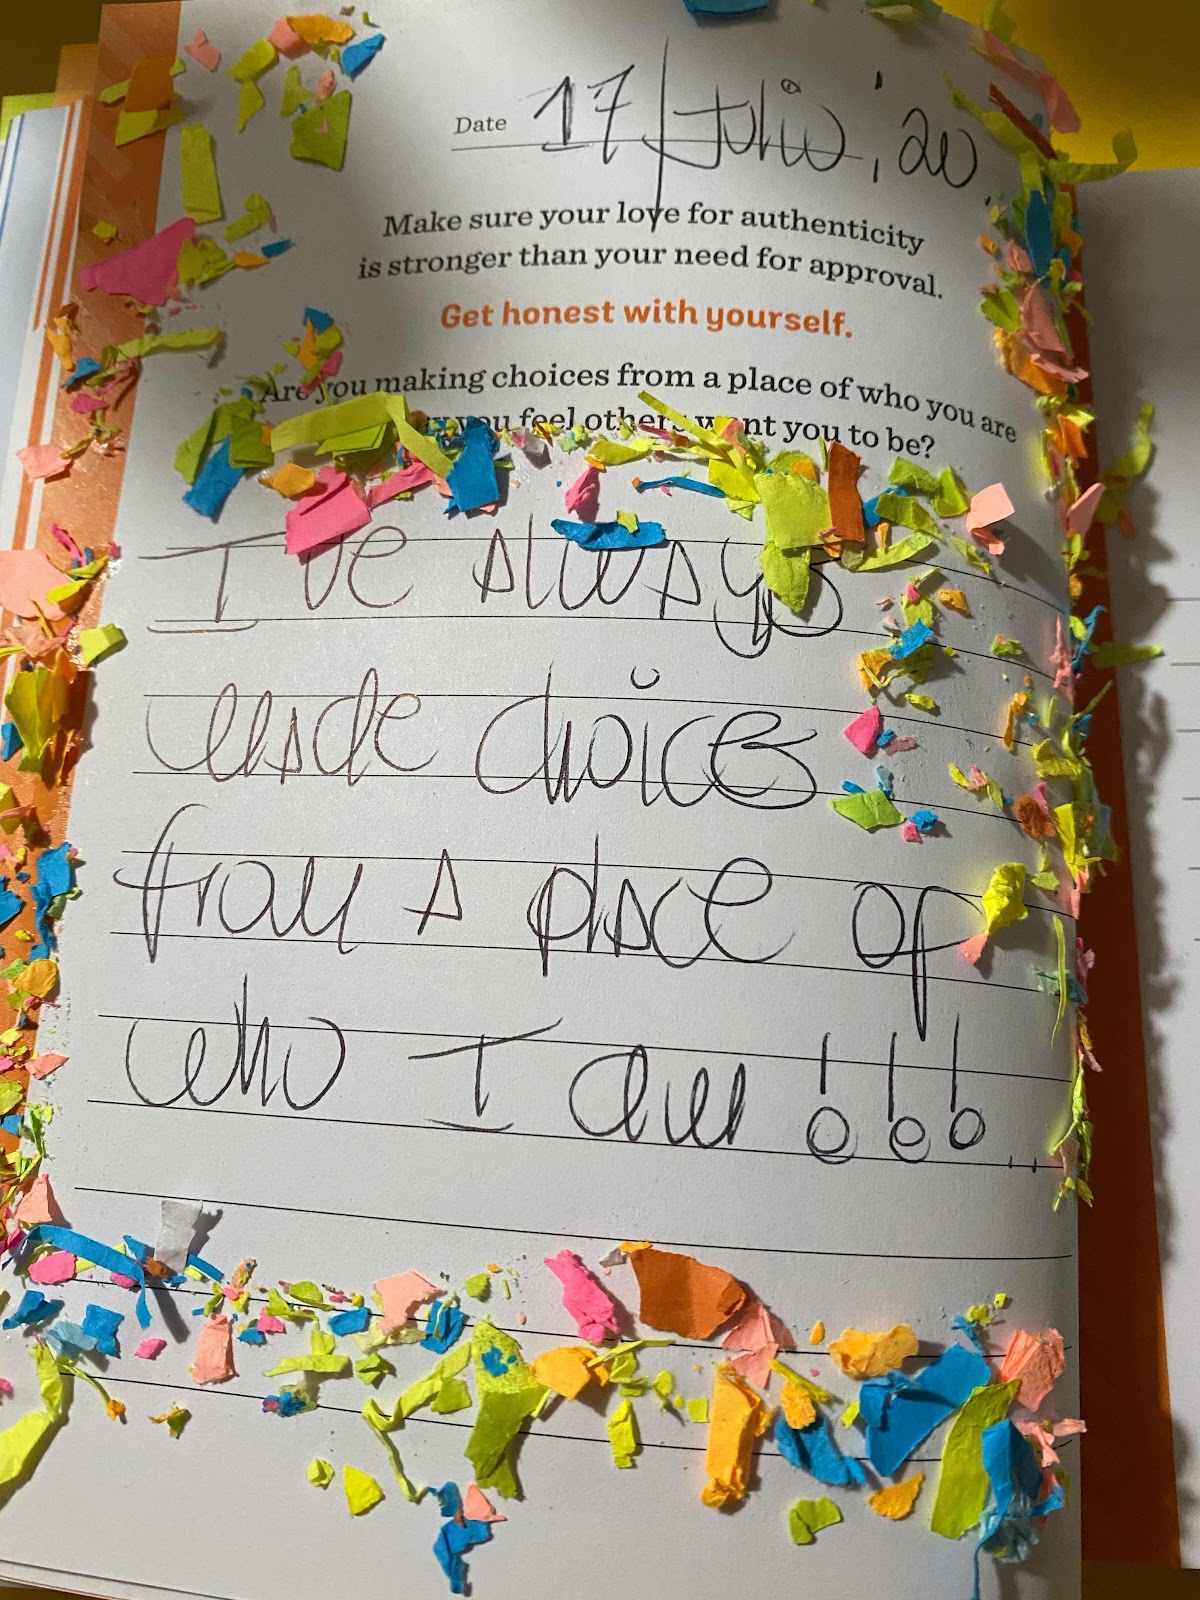 Date 17/Julio, '20
Make sure your love for authenticity
is stronger than your need for approval.
Get honest with yourself.
Are you making choices from a place of who you are
you feel others want you to be?
I've always
made choices
from a place of
who I am!!!..